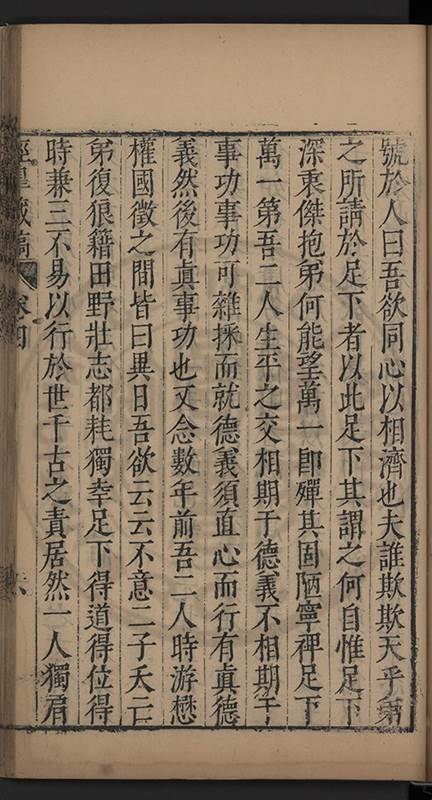 號於人曰吾欲同心以相濟也夫誰欺欺天乎第
之所請於足下者以此足下其謂之何自惟足下
深秉傑抱弟何能望萬一卽殫其固陋寧裨足下
萬一第吾二人生平之交相期于德義不相期于
事功事功可雜揉而就德義須直心而行有眞德
義然後有眞事功也又念數年前吾二人時游懋
權國徵之間皆曰異日吾欲云云不意二子夭亡
弟復狼籍田野壯志都耗獨幸足下得道得位得
時兼三不易以行於世千古之責居然一人獨肩
涇臯藏稿 卷四 六